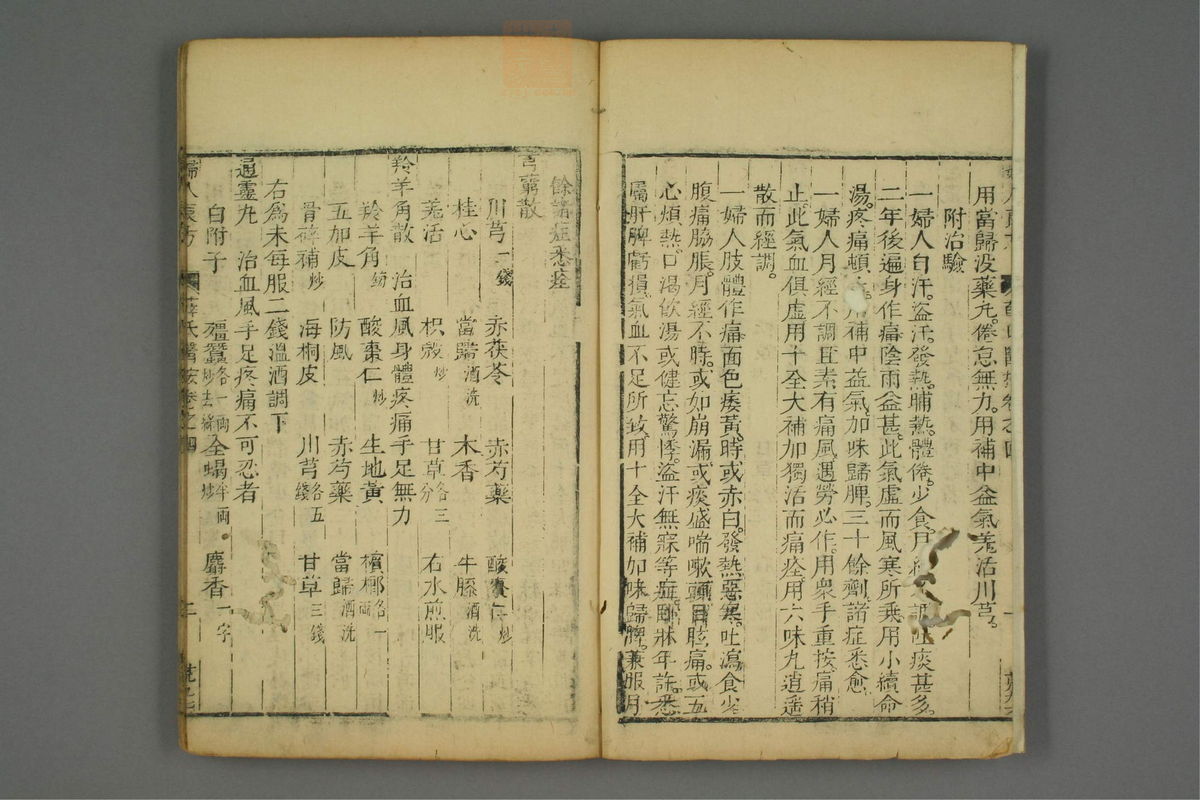 用當歸没藥丸。倦怠無力。用補中益氣羌活川芎。
附治驗
一婦人自汗。盗汗。發熱。晡熱。體倦。少食。月痰甚多。
二年後遍身作痛。陰雨益甚。此氣虛而風寒所乘。用小續命
湯。疼痛頓用補中益氣。加味歸脾。三十餘劑。諸症悉愈。
一婦人月經不調。且素有痛風。遇勞必作。用衆手重按。痛稍
止。此氣血俱虛。用十全大補加獨活而痛痊。用六味丸。逍遥
散而經調。
一婦人肢體作痛。面色痿黃。時或赤白。發熱惡寒。吐瀉食少。
腹痛脇脹。月經不時。或如崩漏。或痰盛喘嗽。頭目眩痛。或五
心煩熱。口渴飲湯。或健忘驚悸。盗汗無寐等症。年許。悉
屬肝脾虧損。氣血不足所致。用十全大補。加味歸脾。兼服月
餘。諸症悉痊
芎藭散
川芎一錢 赤茯苓 赤芍藥 酸棗仁炒
桂心 當歸酒洗 木香 牛膝酒洗
羌活 枳殻炒 甘草各三分 右水煎服
羚羊角散 治血風身體疼痛手足無力
羚羊角 酸棗仁炒 生地黃 檳榔各一兩
五加皮 防風 赤芍藥 當歸酒洗
骨碎補炒 海桐皮 川芎各五錢 甘草三錢
右爲末每服二錢溫酒調下
通靈丸 治血風手足疼痛不可忍者
白附子 殭蠶各一兩炒去絲 全蝎半兩炒 麝香一字
婦人良方 薛氏醫按卷之四 二